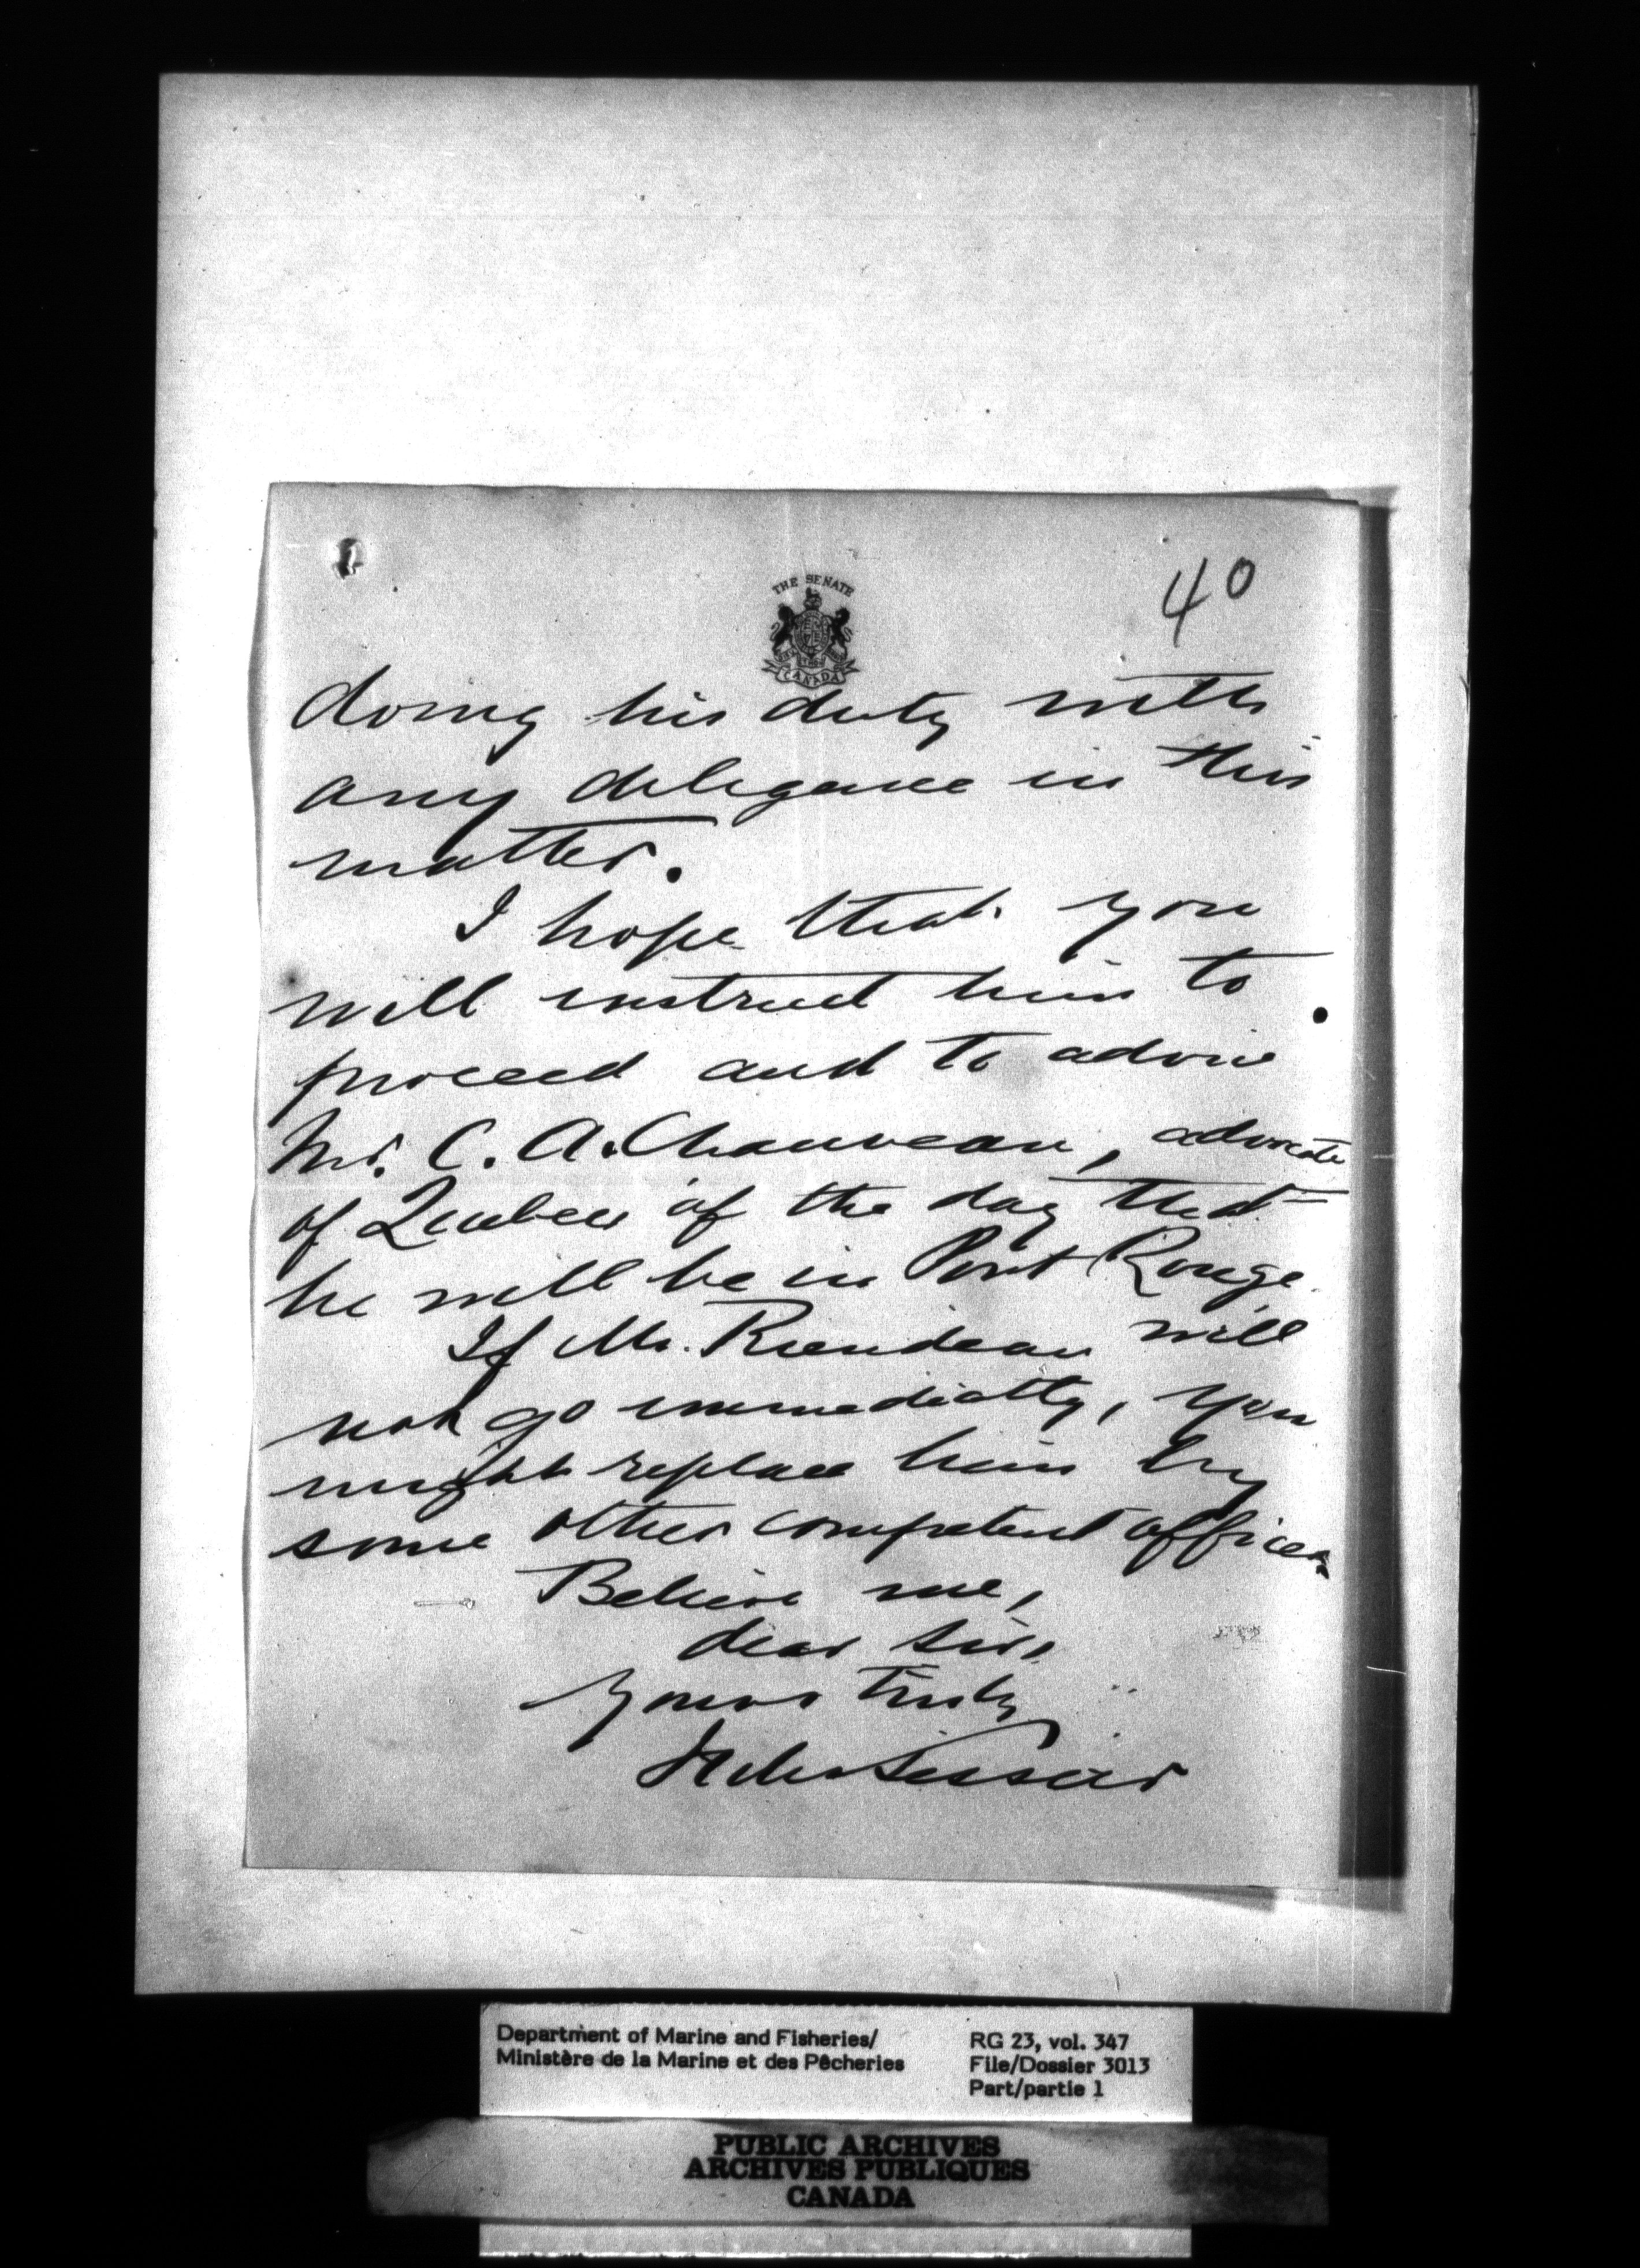 THE SENATE
CANADA
40
doing his duty with
any deligence in this
matter.
I hope that you
will instruct him to
proceed and to advise
Mr. C. A. Chauveau, advocate
of Quebec of the day that
he will be in Pont Rouge
If Mr. Riendeau will
not go immediatly, you
might replace him by
some other competent officer.
Believe me,
dear Sir,
Yours truly
Tessier
Department of Marine and Fisheries/
Ministère de la Marine et des Pêcheries
RG 23, vol. 347
File/Dossier 3013
Part/partie 1
PUBLIC ARCHIVES
ARCHIVES PUBLIQUES
CANADA